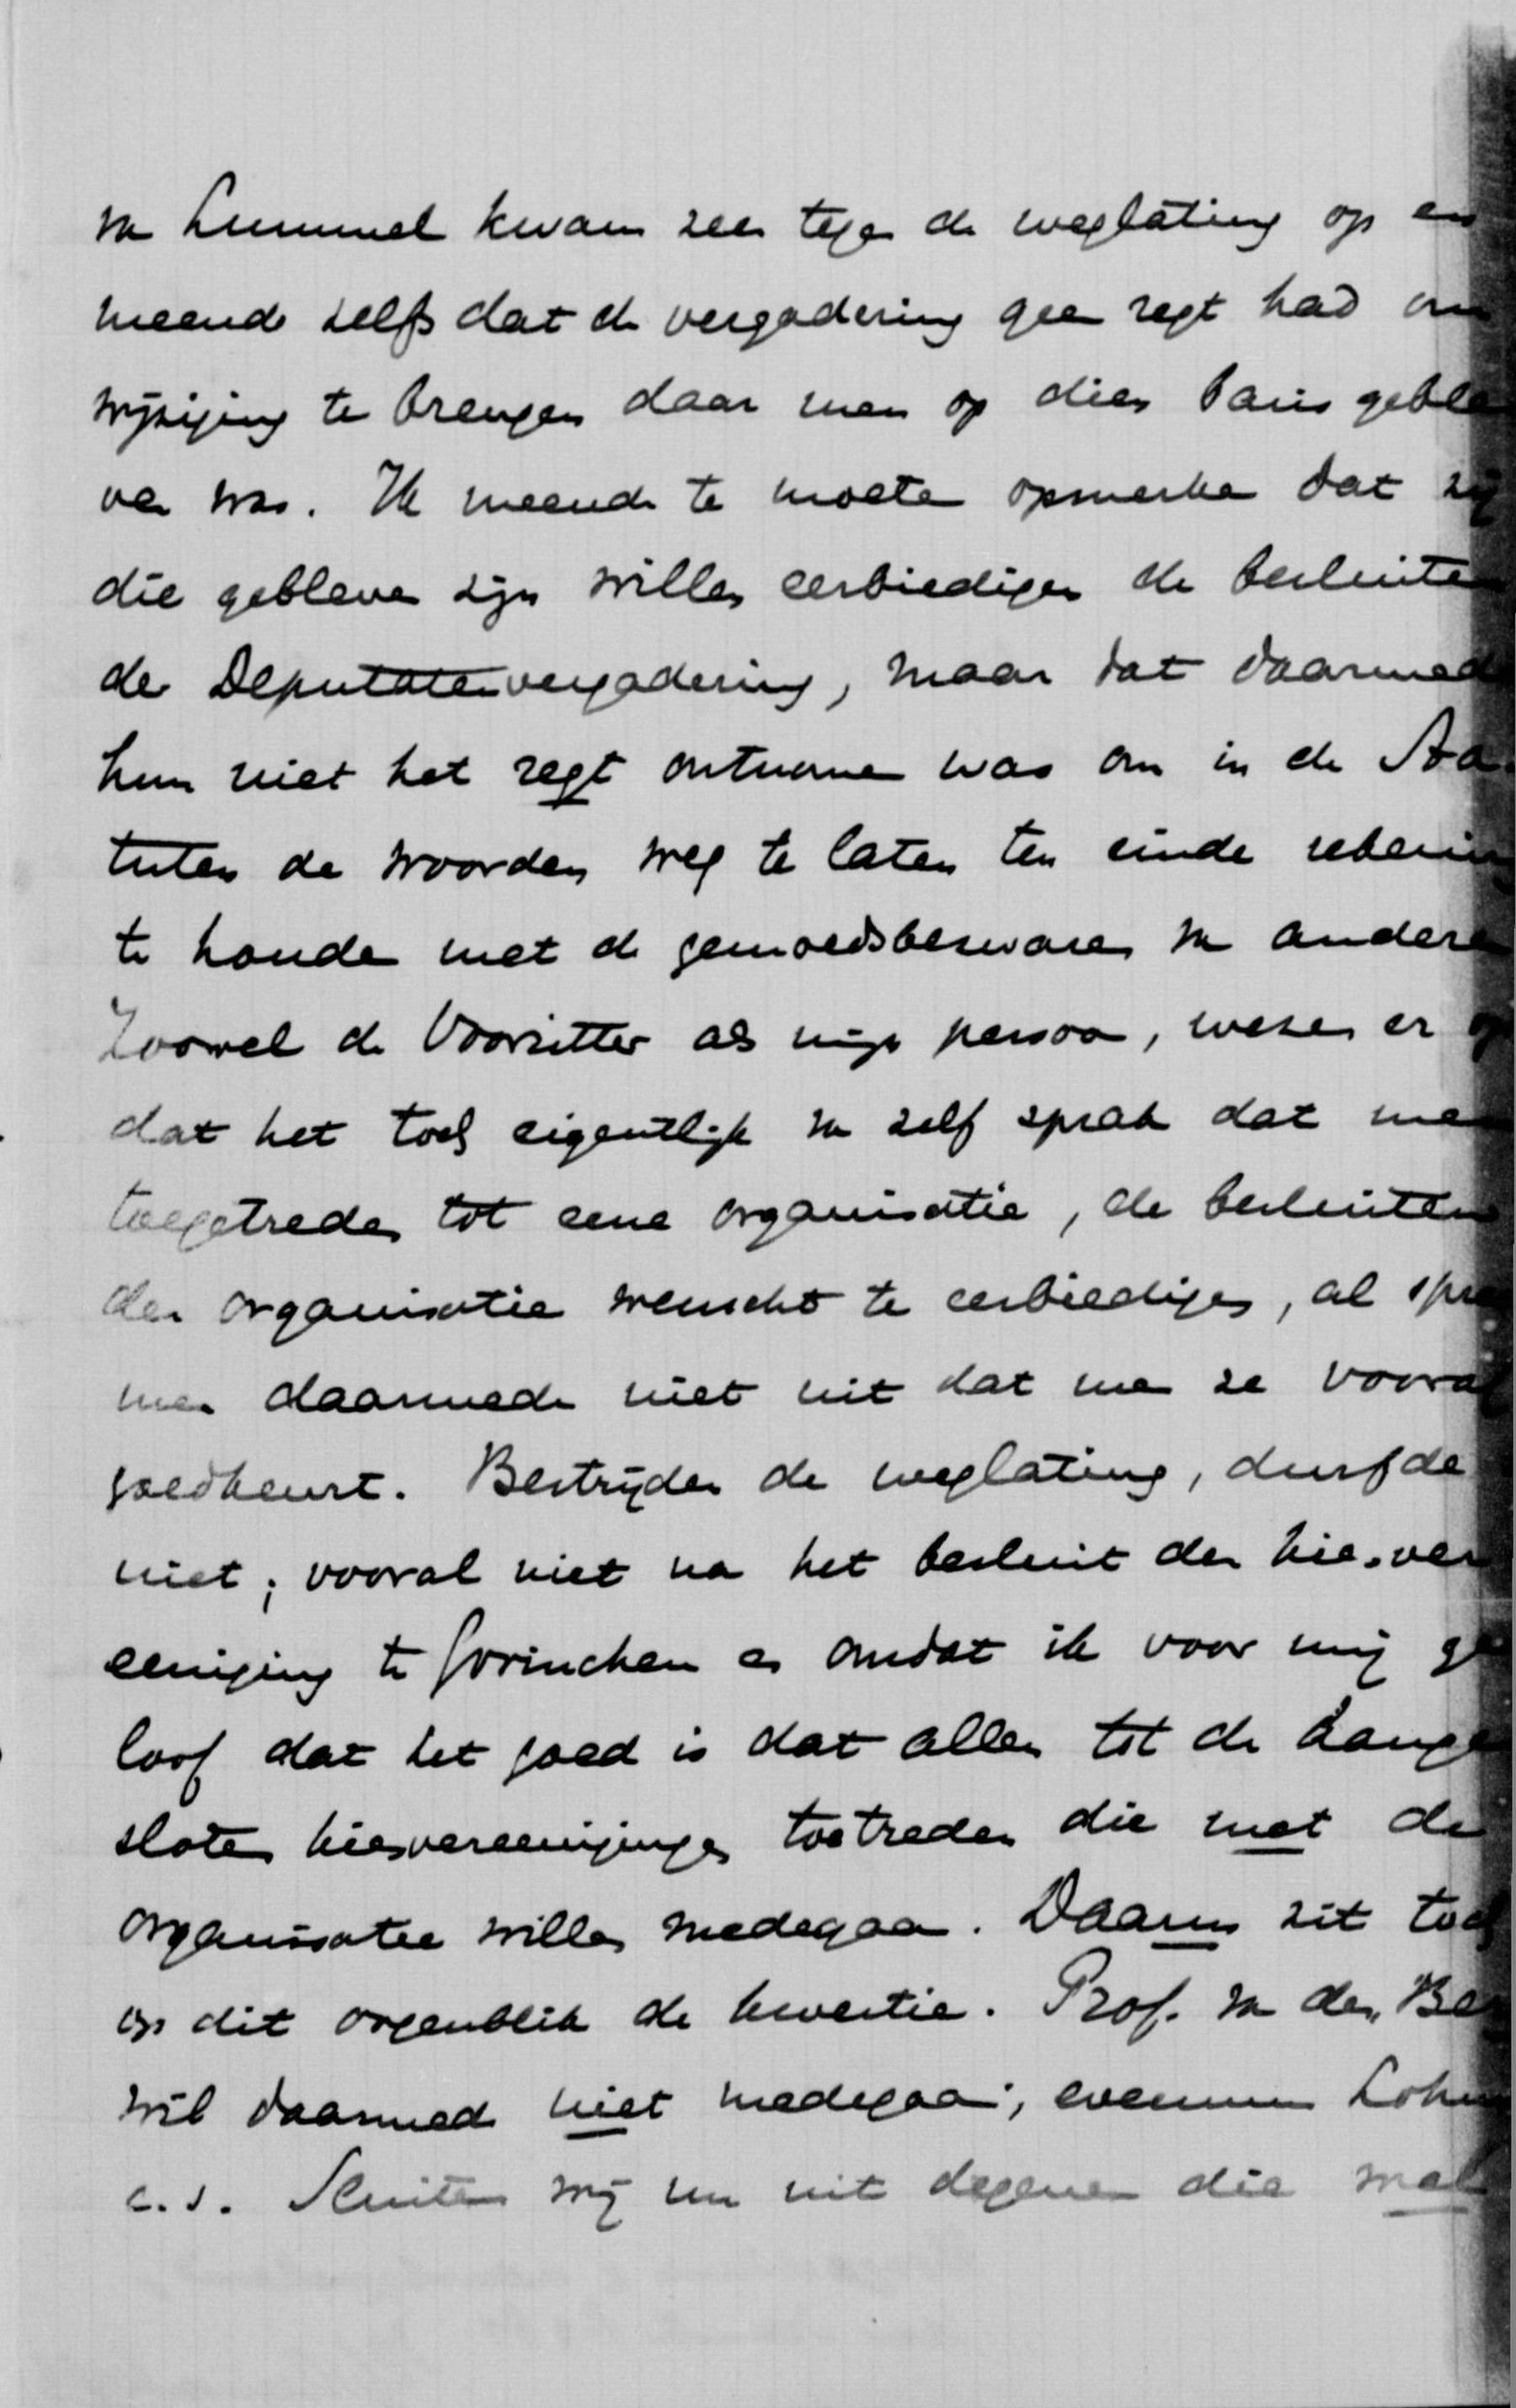 van Lummel kwam zeer tegen de weglating op en
meende zelfs dat de vergadering geen regt had om
wijziging te brengen daar men op dien basis geble
ven was. Ik meende te moeten opmerken dat zij
die gebleven zijn willen eerbiedigen de besluiten
der Deputatenvergadering, maar dat daarmede
hun niet het regt ontnomen was om in de Sta-
tuten de woorden weg te laten ten einde rekening
te houden met de gemoedsbezwaren van anderen
Zoowel de Voorzitter als mijn persoon, wezen er op
dat het toch eigentlijk van zelf sprak dat men
toegetreden tot eene organisatie, de besluiten
der organisatie wenscht te eerbiedigen, al spra
men daarmede niet uit dat men ze vooraf
goedkeurt. Bestrijden de weglating, durfde
niet; vooral niet na het besluit der kiesver
eeniging te Gorinchem en omdat ik voor mij ge
loof dat het goed is dat allen tot de aange
sloten kiesvereenigingen toetreden die met de
organisatie willen medegaan. Daarin zit toch
op dit oogenblik de kwestie. Prof. van den Ber
wil daarmede niet medegaan, evenmin Lohm
c.s. Sluiten wij nu uit degenen die wel